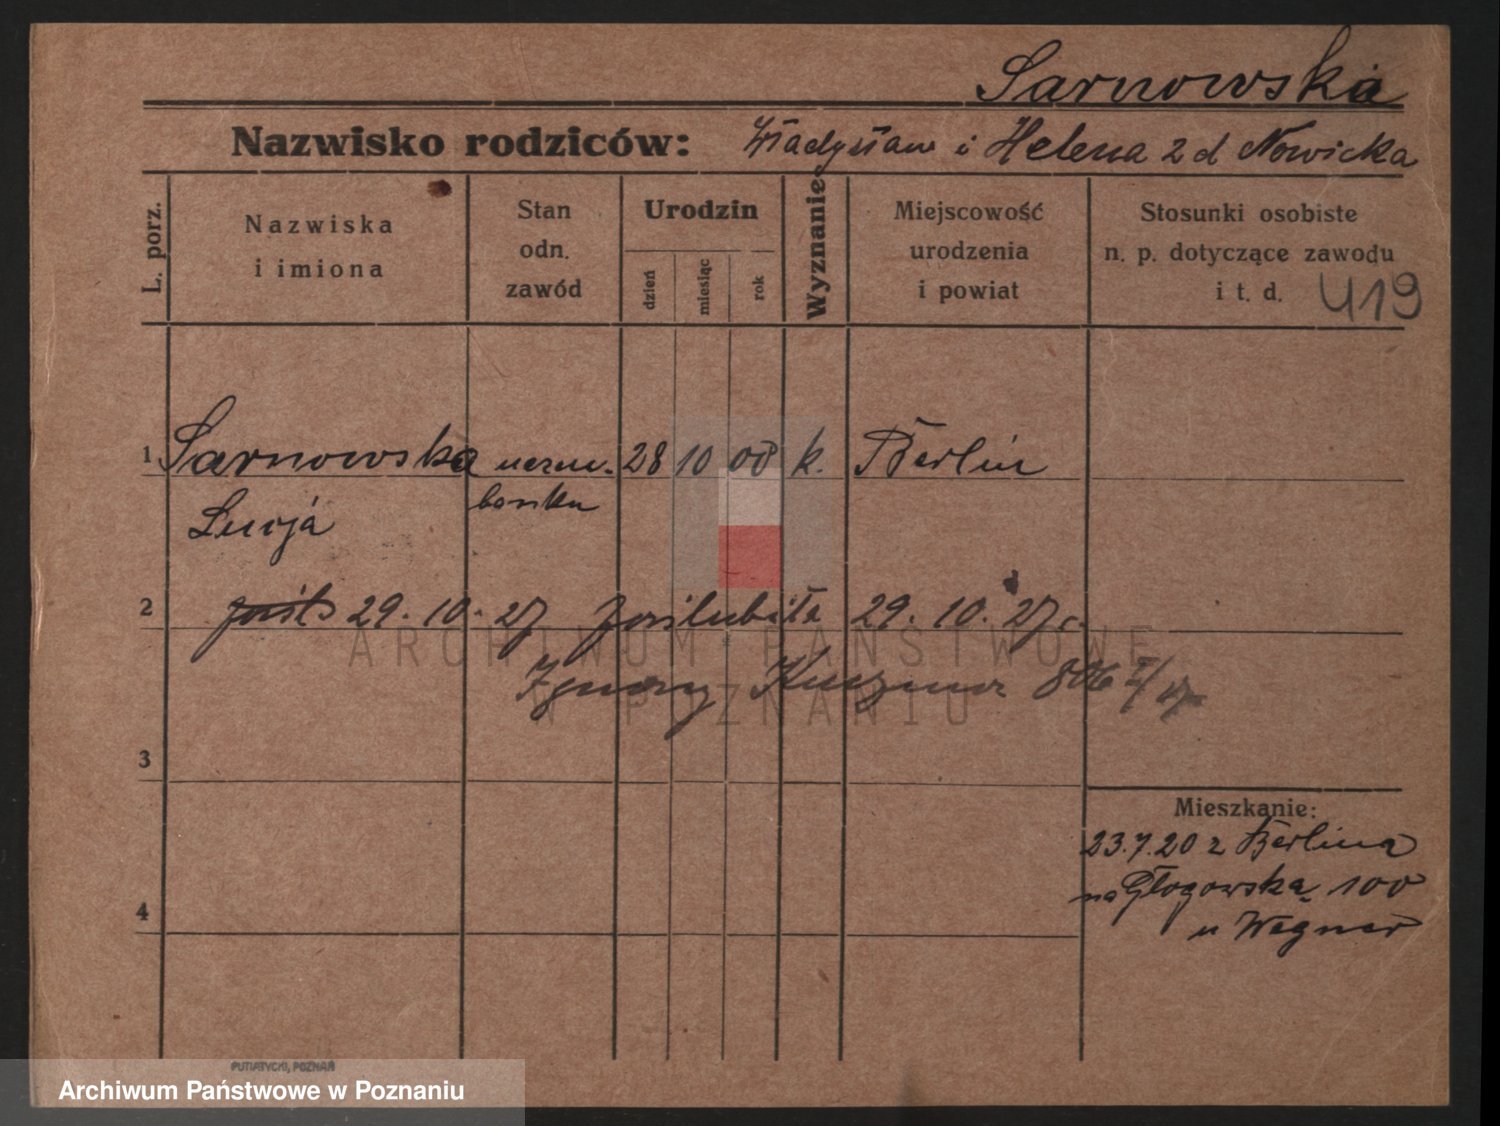 Sarnowska
Nazwisko rodziców: Władysław i Helena z d Nowicka
L. porz.
Nazwiska
i imiona
Stan
odn.
zawód
Urodzin
dzień
miesiąc
rok
Wyznanie
Miejscowość
urodzenia
i powiat
Stosunki osobiste
n. p. dotyczące zawodu
i t. d. 419
1 Sarnowska uczen. 28 10 00 k. Berlin
Lucja banku
2 29. 10. 27 poślubiła 29. 10. 27 r.
Ignacy Kuczmer 806
3
Mieszkanie:
23.7.20 z Berlina
na Głogowską 100
4
u Wegner
PUTIATYCKI, POZNAŃ
ARCHIWUM PAŃSTWOWE
W POZNANIU
Archiwum Państwowe w Poznaniu